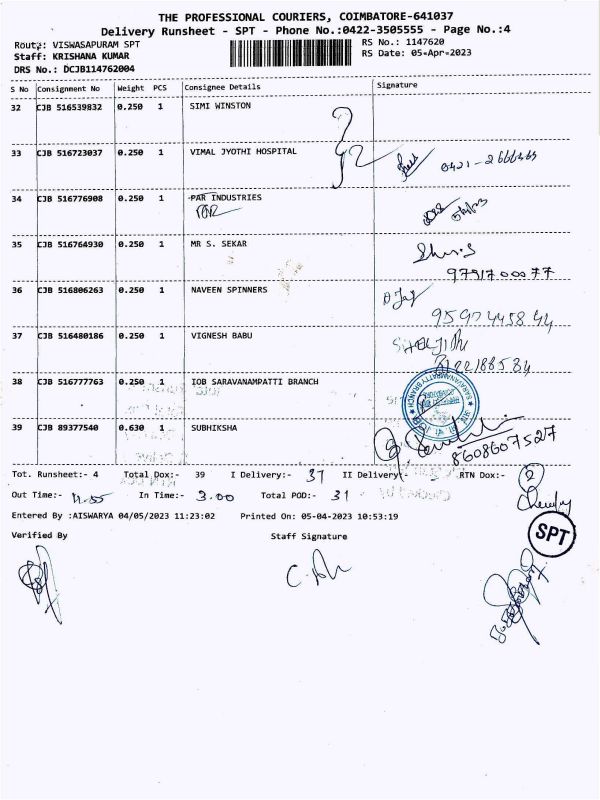 THE PROFESSIONAL COURIERS, COIMBATORE-641037
Delivery Runsheet - SPT - Phone No.:0422-3505555 - Page No.:4
Route: VISWASAPURAM SPT
RS No.: 1147620
Staff: KRISHANA KUMAR
RS Date: 05-Apr-2023
DRS No.: DCJB114762004
S No Consignment No Weight PCS Consignee Details Signature
32 CJB 516539832 0.250 1 SIMI WINSTON
33 CJB 516723037 0.250 1 VIMAL JYOTHI HOSPITAL
34 CJB 516776908 0.250 1 PAR INDUSTRIES
35 CJB 516764930 0.250 1 MR S. SEKAR
9791700077
36 CJB 516806263 0.250 1 NAVEEN SPINNERS
37 CJB 516480186 0.250 1 VIGNESH BABU
38 CJB 516777763 0.250 1 IOB SARAVANAMPATTI BRANCH
39 CJB 89377540 0.630 1 SUBHIKSHA
8608607527
Tot. Runsheet:- 4 Total Dox:- 39 I Delivery:- 37 II Delivery:- RTN Dox:- 2
Out Time:- 11.55 In Time:- 3.00 Total POD:- 31
Entered By :AISWARYA 04/05/2023 11:23:02 Printed On: 05-04-2023 10:53:19
Verified By Staff Signature
SPT